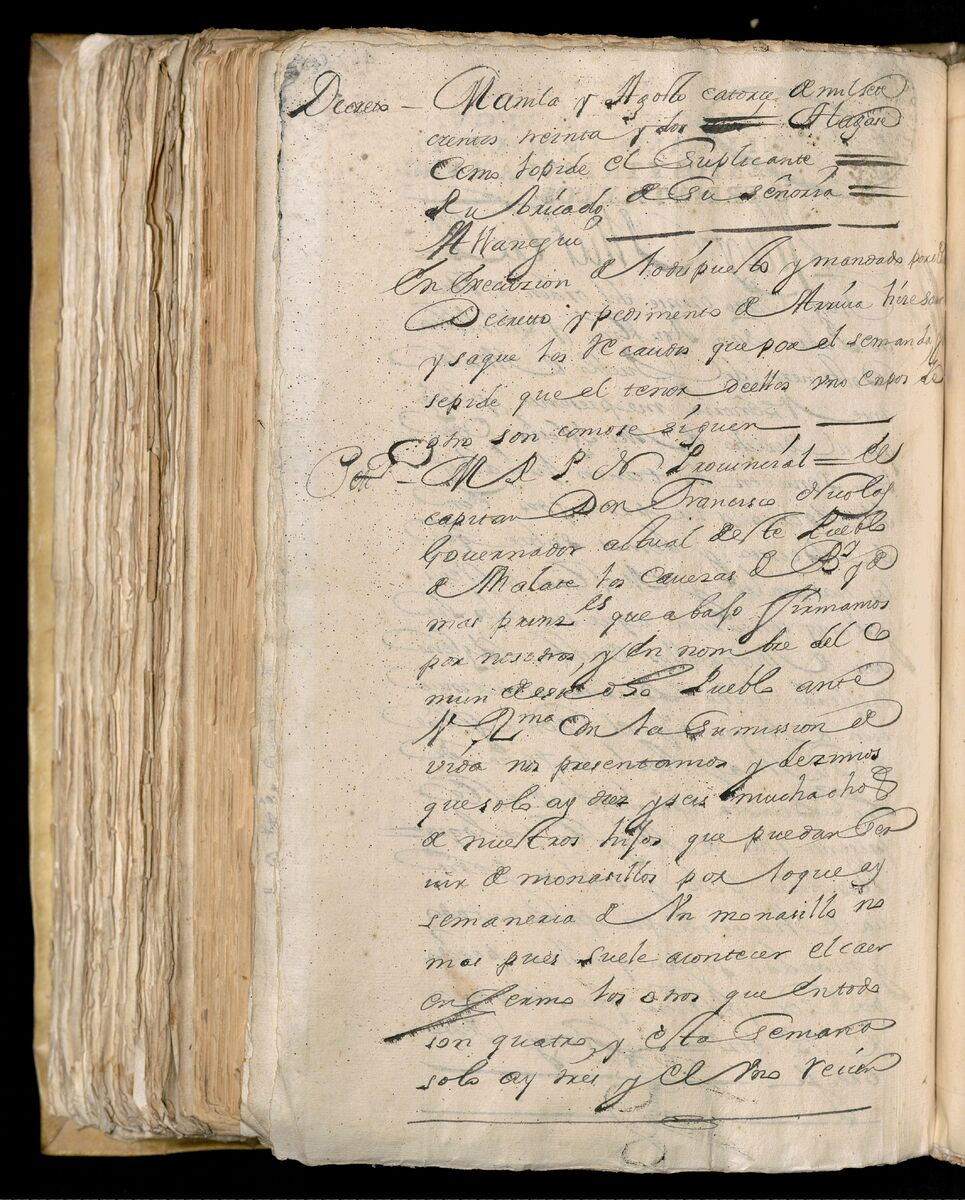 Decreto – Manila y Agosto catorze de mil sete
cientos treinta y dos Hagase
Como lo pide el Suplicante
Rubricado de Su señoria
Allanegui
En execuzion de lo dispuesto y mandado por el
Decreto y pedimento de Arriva hize sacar
y saque los Recaudos que por el se manda y
se pide que el tenor de ellos uno en pos de
otro son como se siguen
Petⁿ – M R P N Provincial = el
capitan Don Francisco Nicolas
Governador actual de este Pueblo
de Malate los Cavezas de Bʸ y de
mas prinzˡᵉˢ que abajo firmamos
por nosotros, y en nombre del Co
mun de este dho Pueblo ante
V Rma Con la Sumission de
vida nos presentamos y dezimos
que solo ay diez y seis muchachos
de nuestros hijos que puedan Ser
vir de monasillos por lo que ay
semaneria de Un monasillo no
mas pues suele acontecer el caer
enfermo los otros que en todo
son quatro, y esta Semana
solo ay tres y el Uno recien